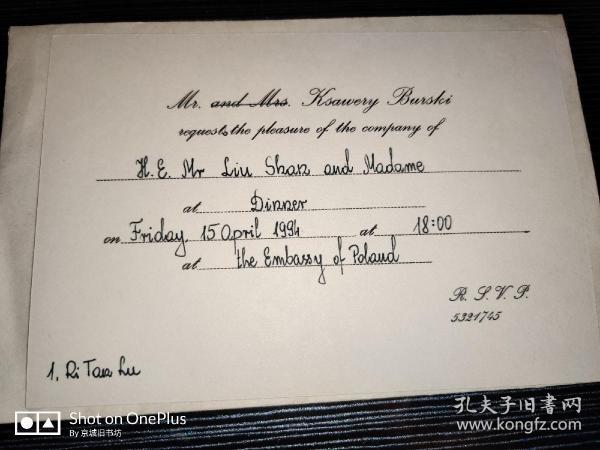 Mr. and Mrs. Ksawery Burski
requests the pleasure of the company of
H.E. Mr Liu Shan and Madame
at Dinner
on Friday, 15 April 1994 at 18:00
at the Embassy of Poland
R. S. V. P.
5321745
1, Ri Tan Lu
Shot on OnePlus
By 京城旧书坊
孔夫子旧書网
www.kongfz.com